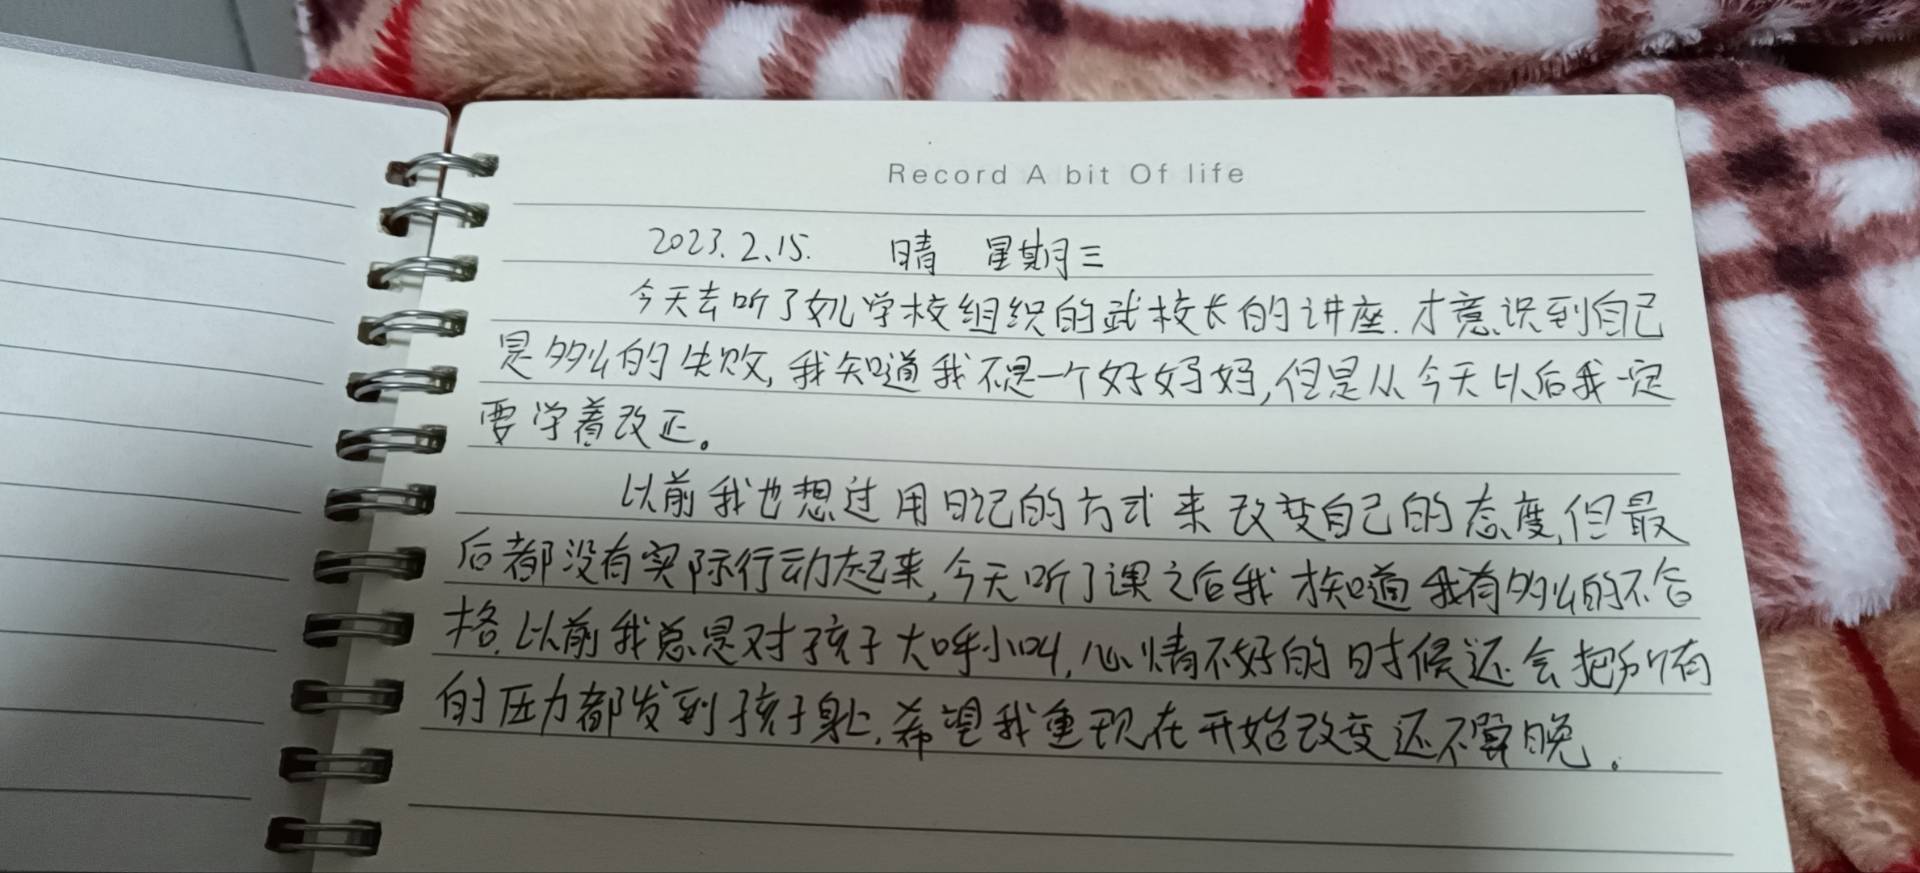 Record A bit Of life
2023.2.15. 晴 星期三
今天去听了幼儿学校组织的武校长的讲座.才意识到自己
是多么的失败,我知道我不是一个好妈妈,但是从今天以后我一定
要学着改正。
以前我也想过用日记的方式来改变自己的态度,但最
后都没有实际行动起来,今天听了课之后我才知道我有多么的不合
格.以前我总是对孩子大呼小叫,心情不好的时候还会把所有
的压力都发到孩子身上.希望我重现在开始改变还不算晚.